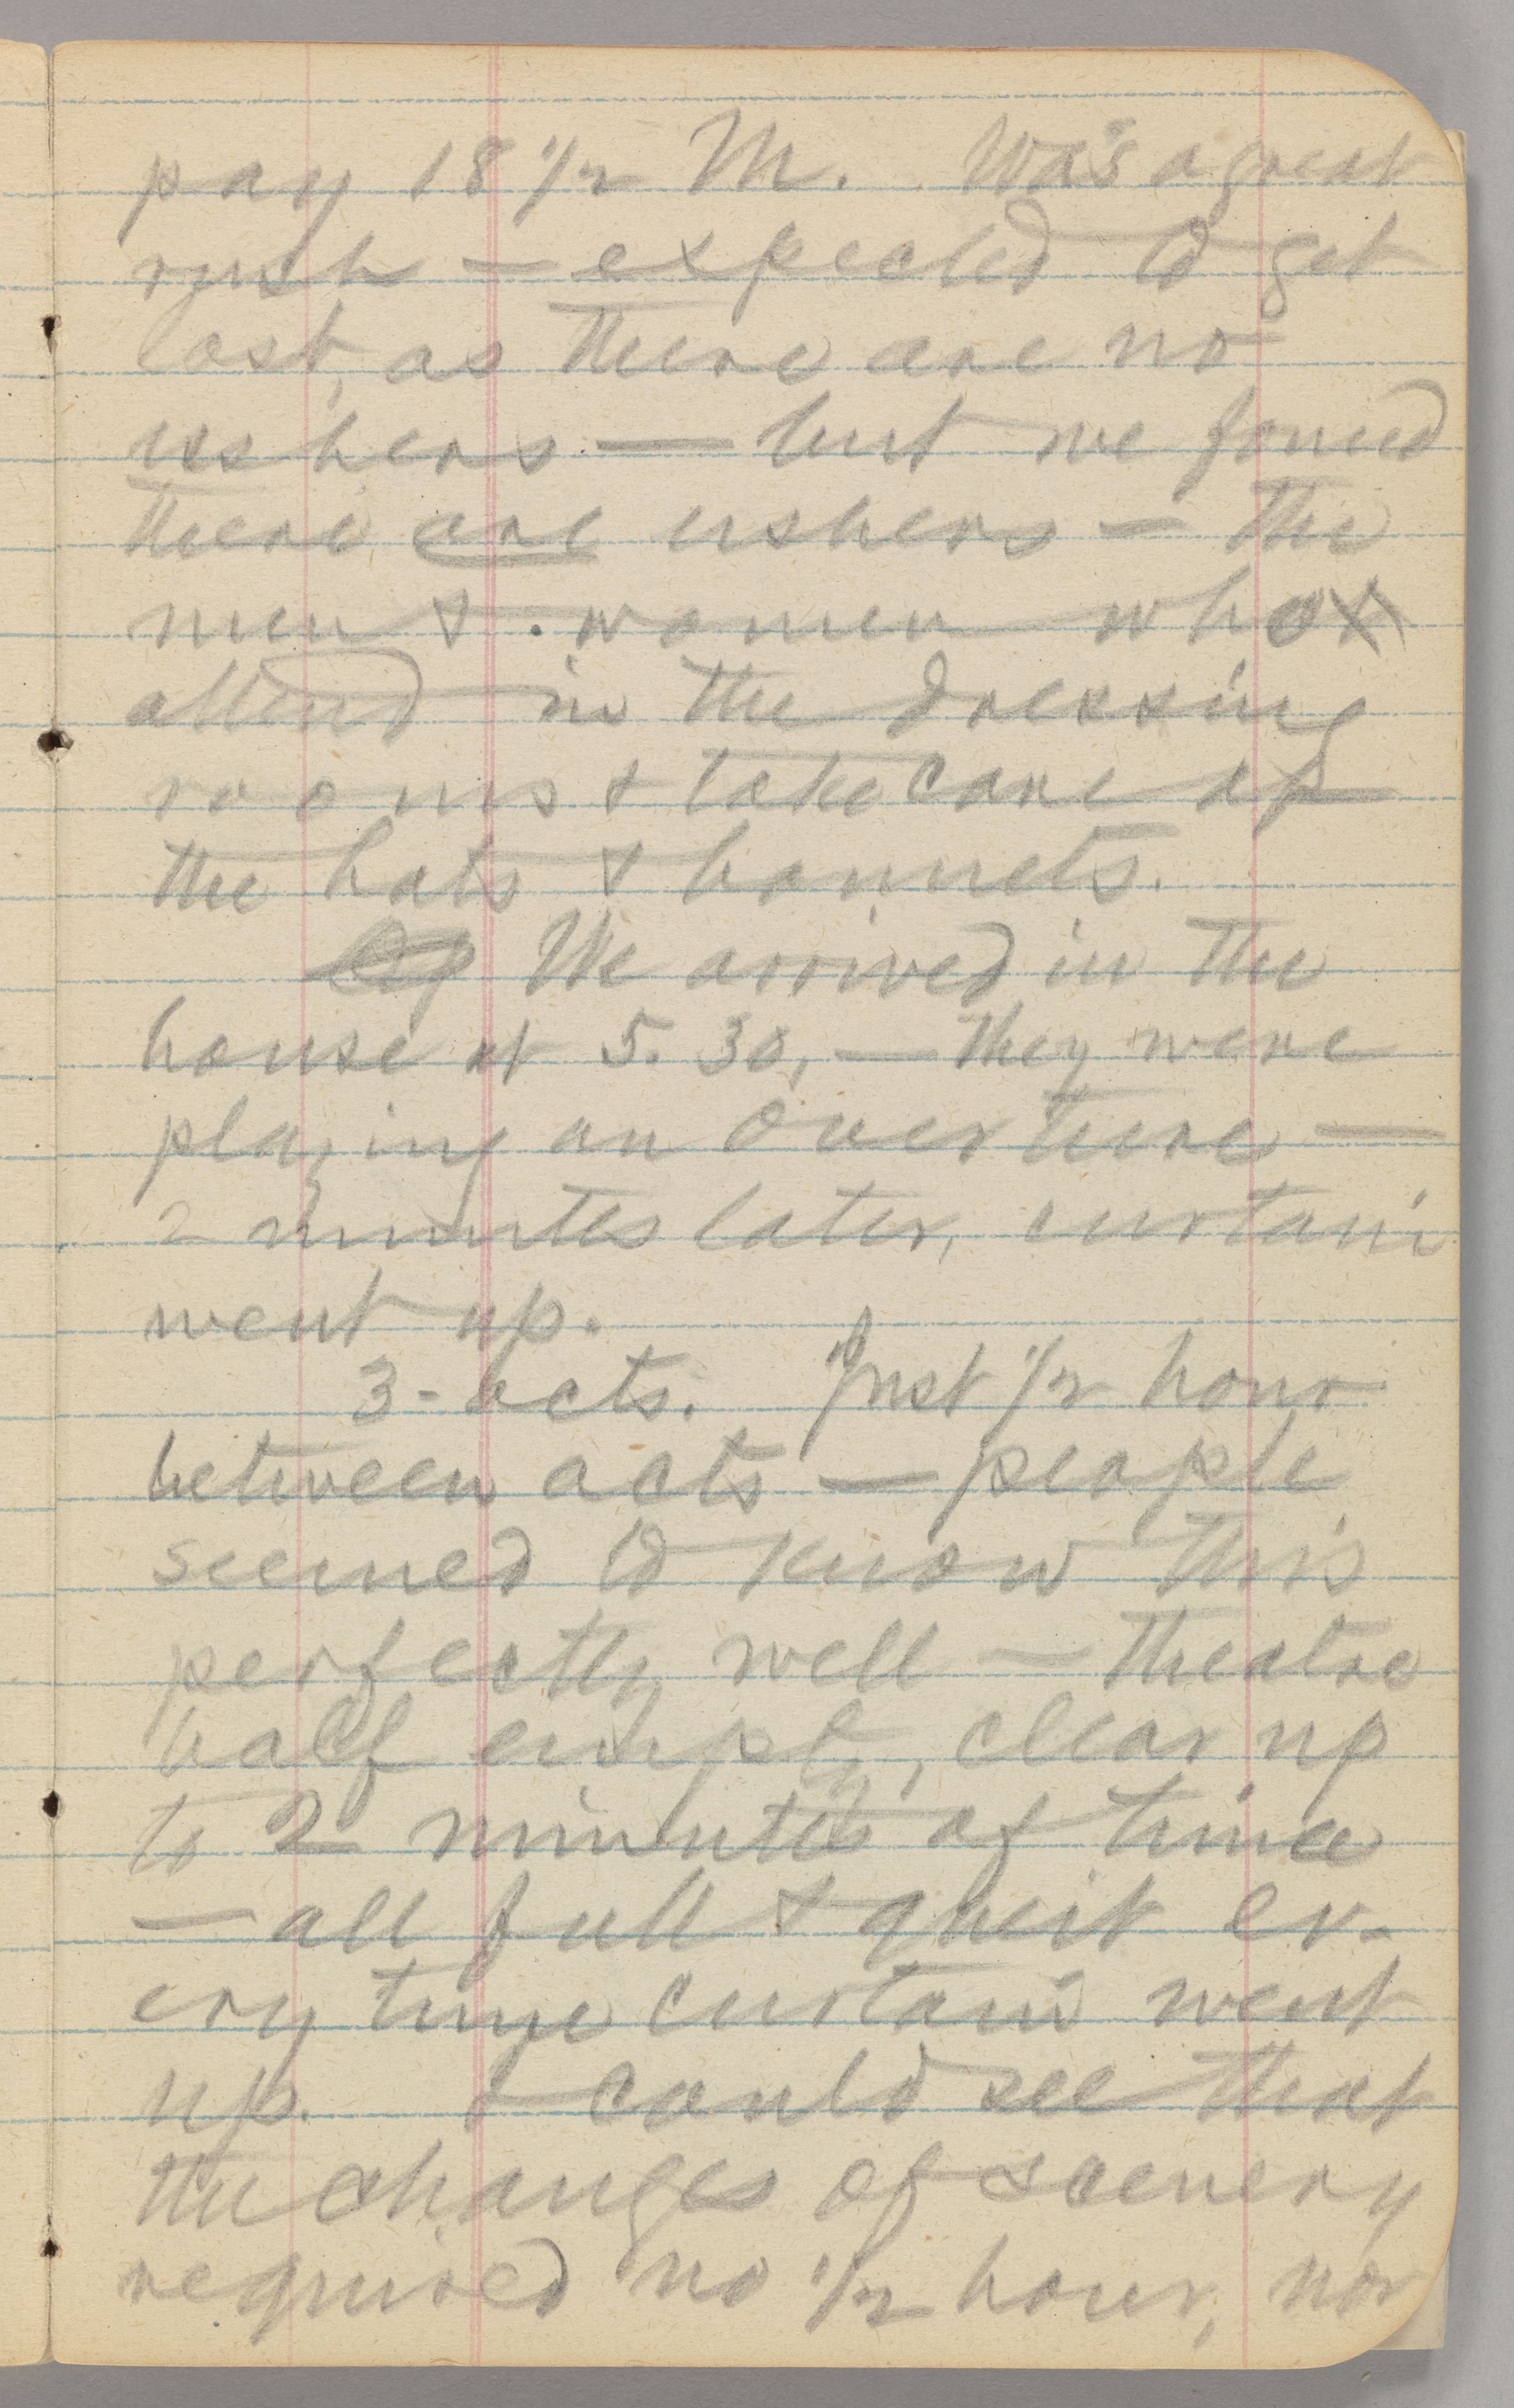 pay 18 1/2 M. Was a great
rush — expected to get
lost, as there are no
ushers — but we found
there are ushers — the
men & women who
attend in the dressing
rooms & take care of
the hats & bonnets.
We arrived in the
house at 5.30, — they were
playing an overture —
2 minutes later, curtain
went up.
3-acts. Just 1/2 hour
between acts — people
seemed to know this
perfectly well — theatre
half empty, clear up
to 2 minutes of time
— all full & queit ev-
ery time curtain went
up. & could see that
the changes of scenery
required no 1/2 hour, nor